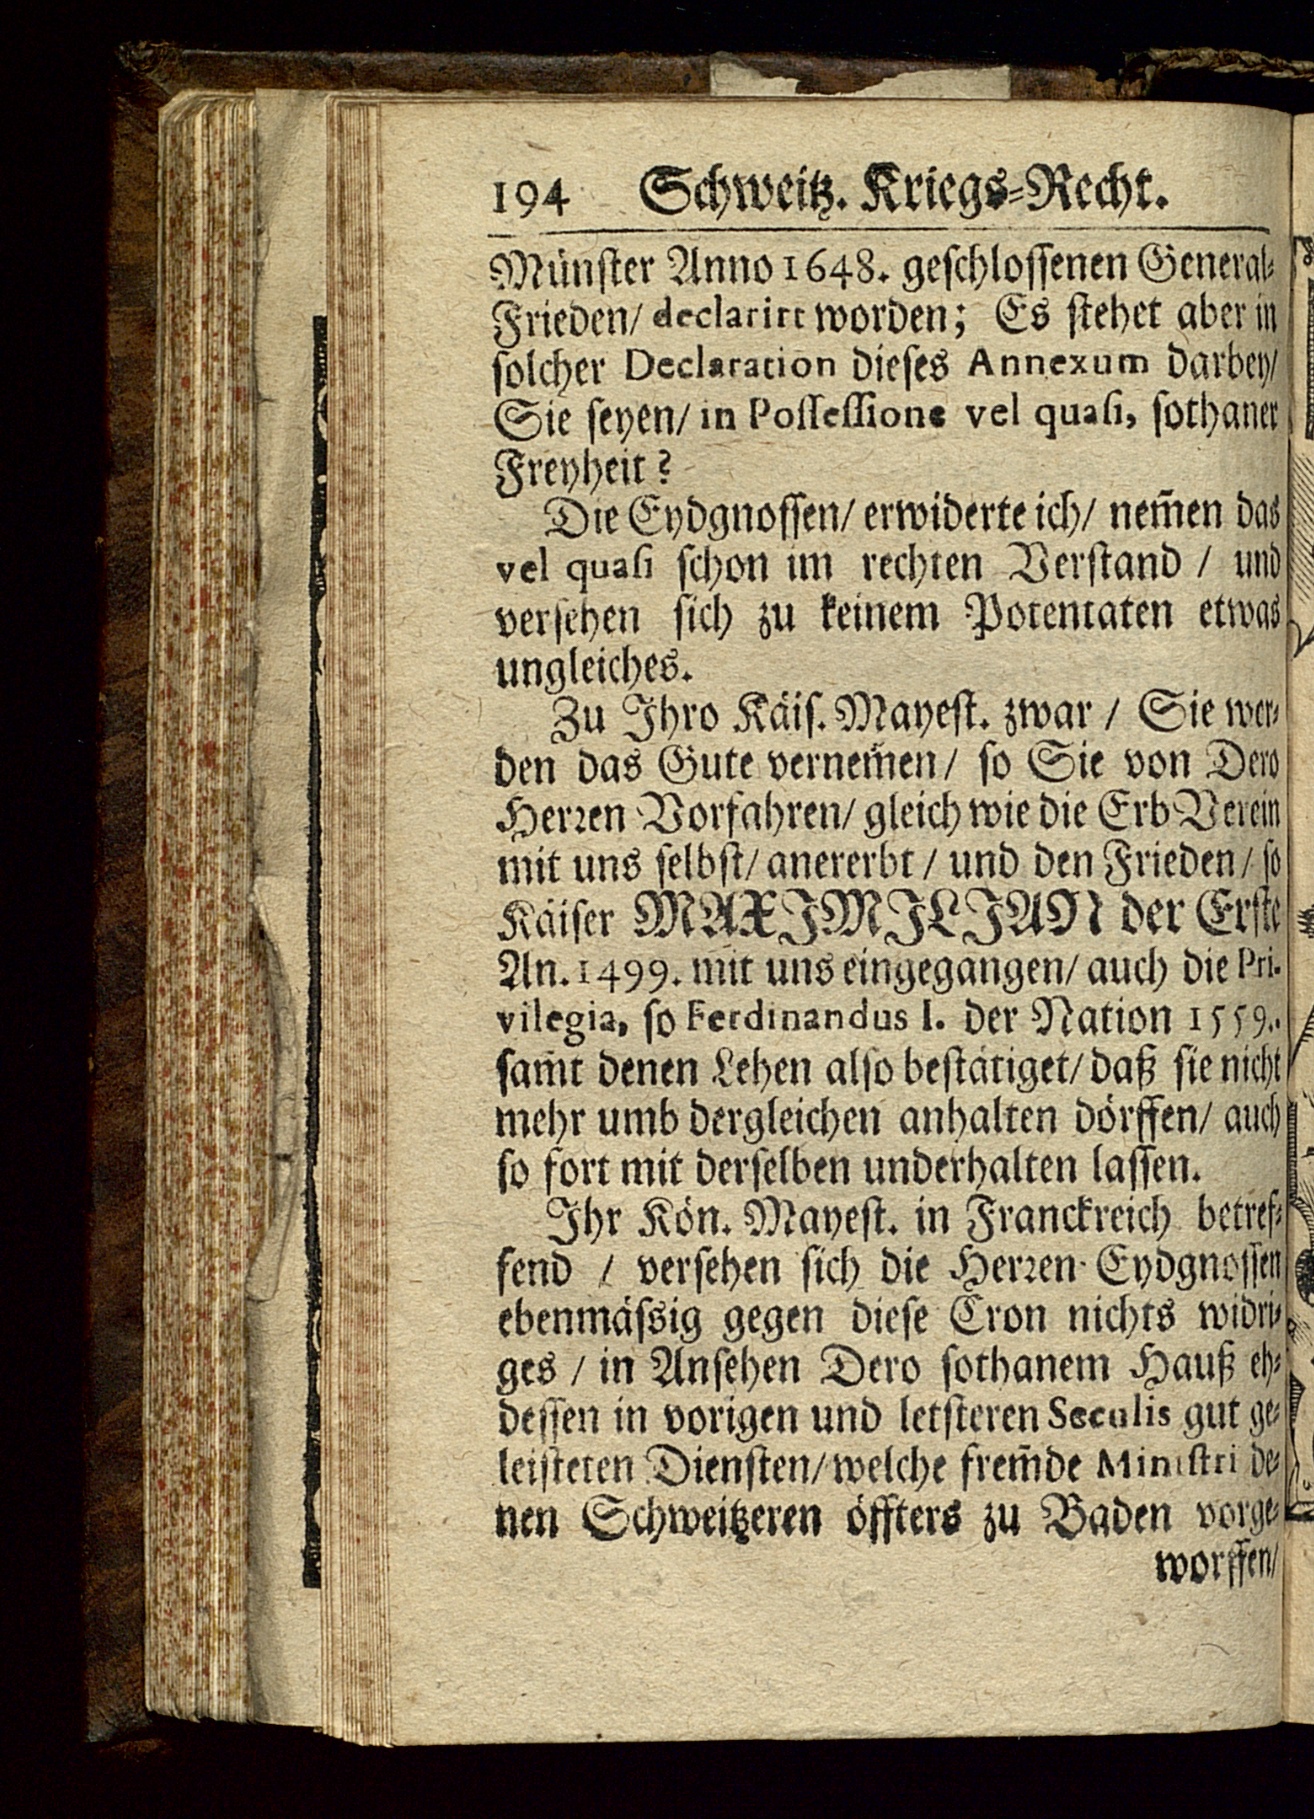 194 Schweitz. Kriegs-Recht.
Münster Anno 1648. geschlossenen General-
Frieden/ declarirt worden; Es stehet aber in
solcher Declaration dieses Annexum darbey/
Sie seyen/ in Possessione vel quasi, sothaner
Freyheit?
Die Eydgnossen/ erwiderte ich/ nem̃en das
vel quasi schon im rechten Verstand / und
versehen sich zu keinem Potentaten etwas
ungleiches.
Zu Ihro Käis. Mayest. zwar / Sie wer-
den das Gute vernem̃en/ so Sie von Dero
Herren Vorfahren/ gleich wie die Erb-Verein
mit uns selbst/ anererbt / und den Frieden/ so
Käiser MAXIMILIAN der Erste
An. 1499. mit uns eingegangen/ auch die Pri-
vilegia, so Ferdinandus I. der Nation 1559.
sam̃t denen Lehen also bestätiget/ daß sie nicht
mehr umb dergleichen anhalten dörffen/ auch
so fort mit derselben underhalten lassen.
Ihr Kön. Mayest. in Franckreich betref-
fend / versehen sich die Herren Eydgnossen
ebenmässig gegen diese Cron nichts widri-
ges / in Ansehen Dero sothanem Hauß eh-
dessen in vorigen und letsteren Seculis gut ge-
leisteten Diensten/ welche frem̃de Ministri de-
nen Schweitzeren öffters zu Baden vorge-
worffen/